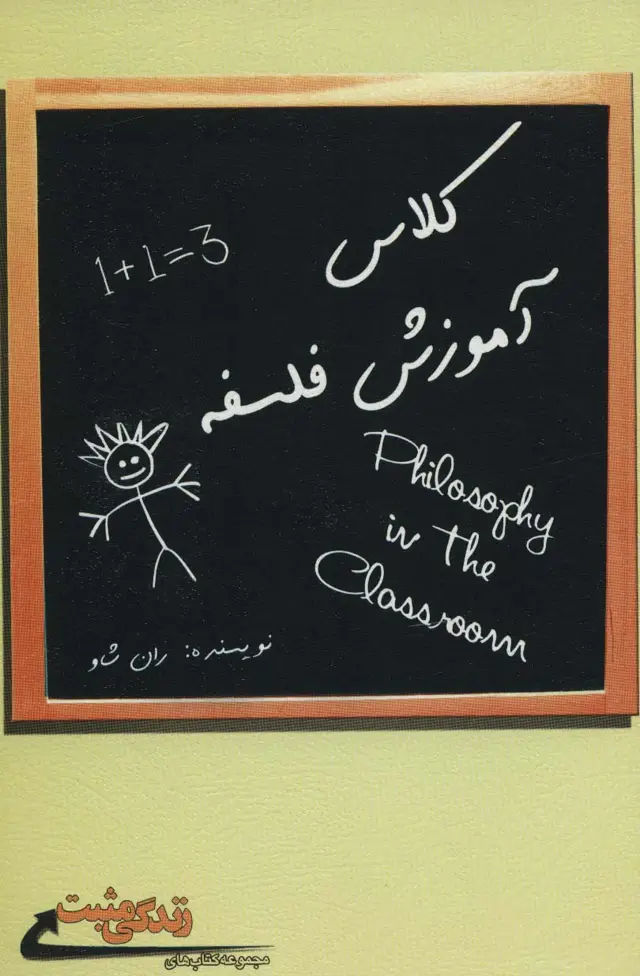 کلاس
آموزش فلسفه
1+1=3
Philosophy
in the
Classroom
نویسنده: ران شاو
زندگی مثبت
مجموعه کتاب‌های